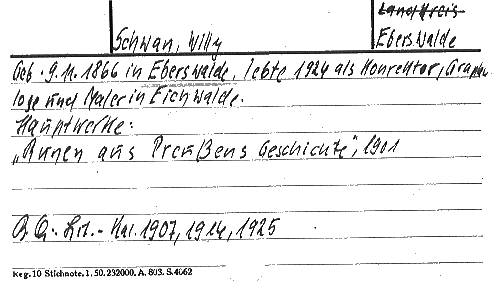 Landkreis
Schwan, Willy
Eberswalde
Geb. 9.11.1866 in Eberswalde, lebte 1924 als Konrektor, Grapho-
loge und Maler in Eichwalde.
Hauptwerke:
„Runen aus Preußens Geschichte", 1901
B Q.: Lit.-Kal. 1907, 1914, 1925
Reg. 10 Stichnote. 1, 50. 232000. A. 803. S. 4062